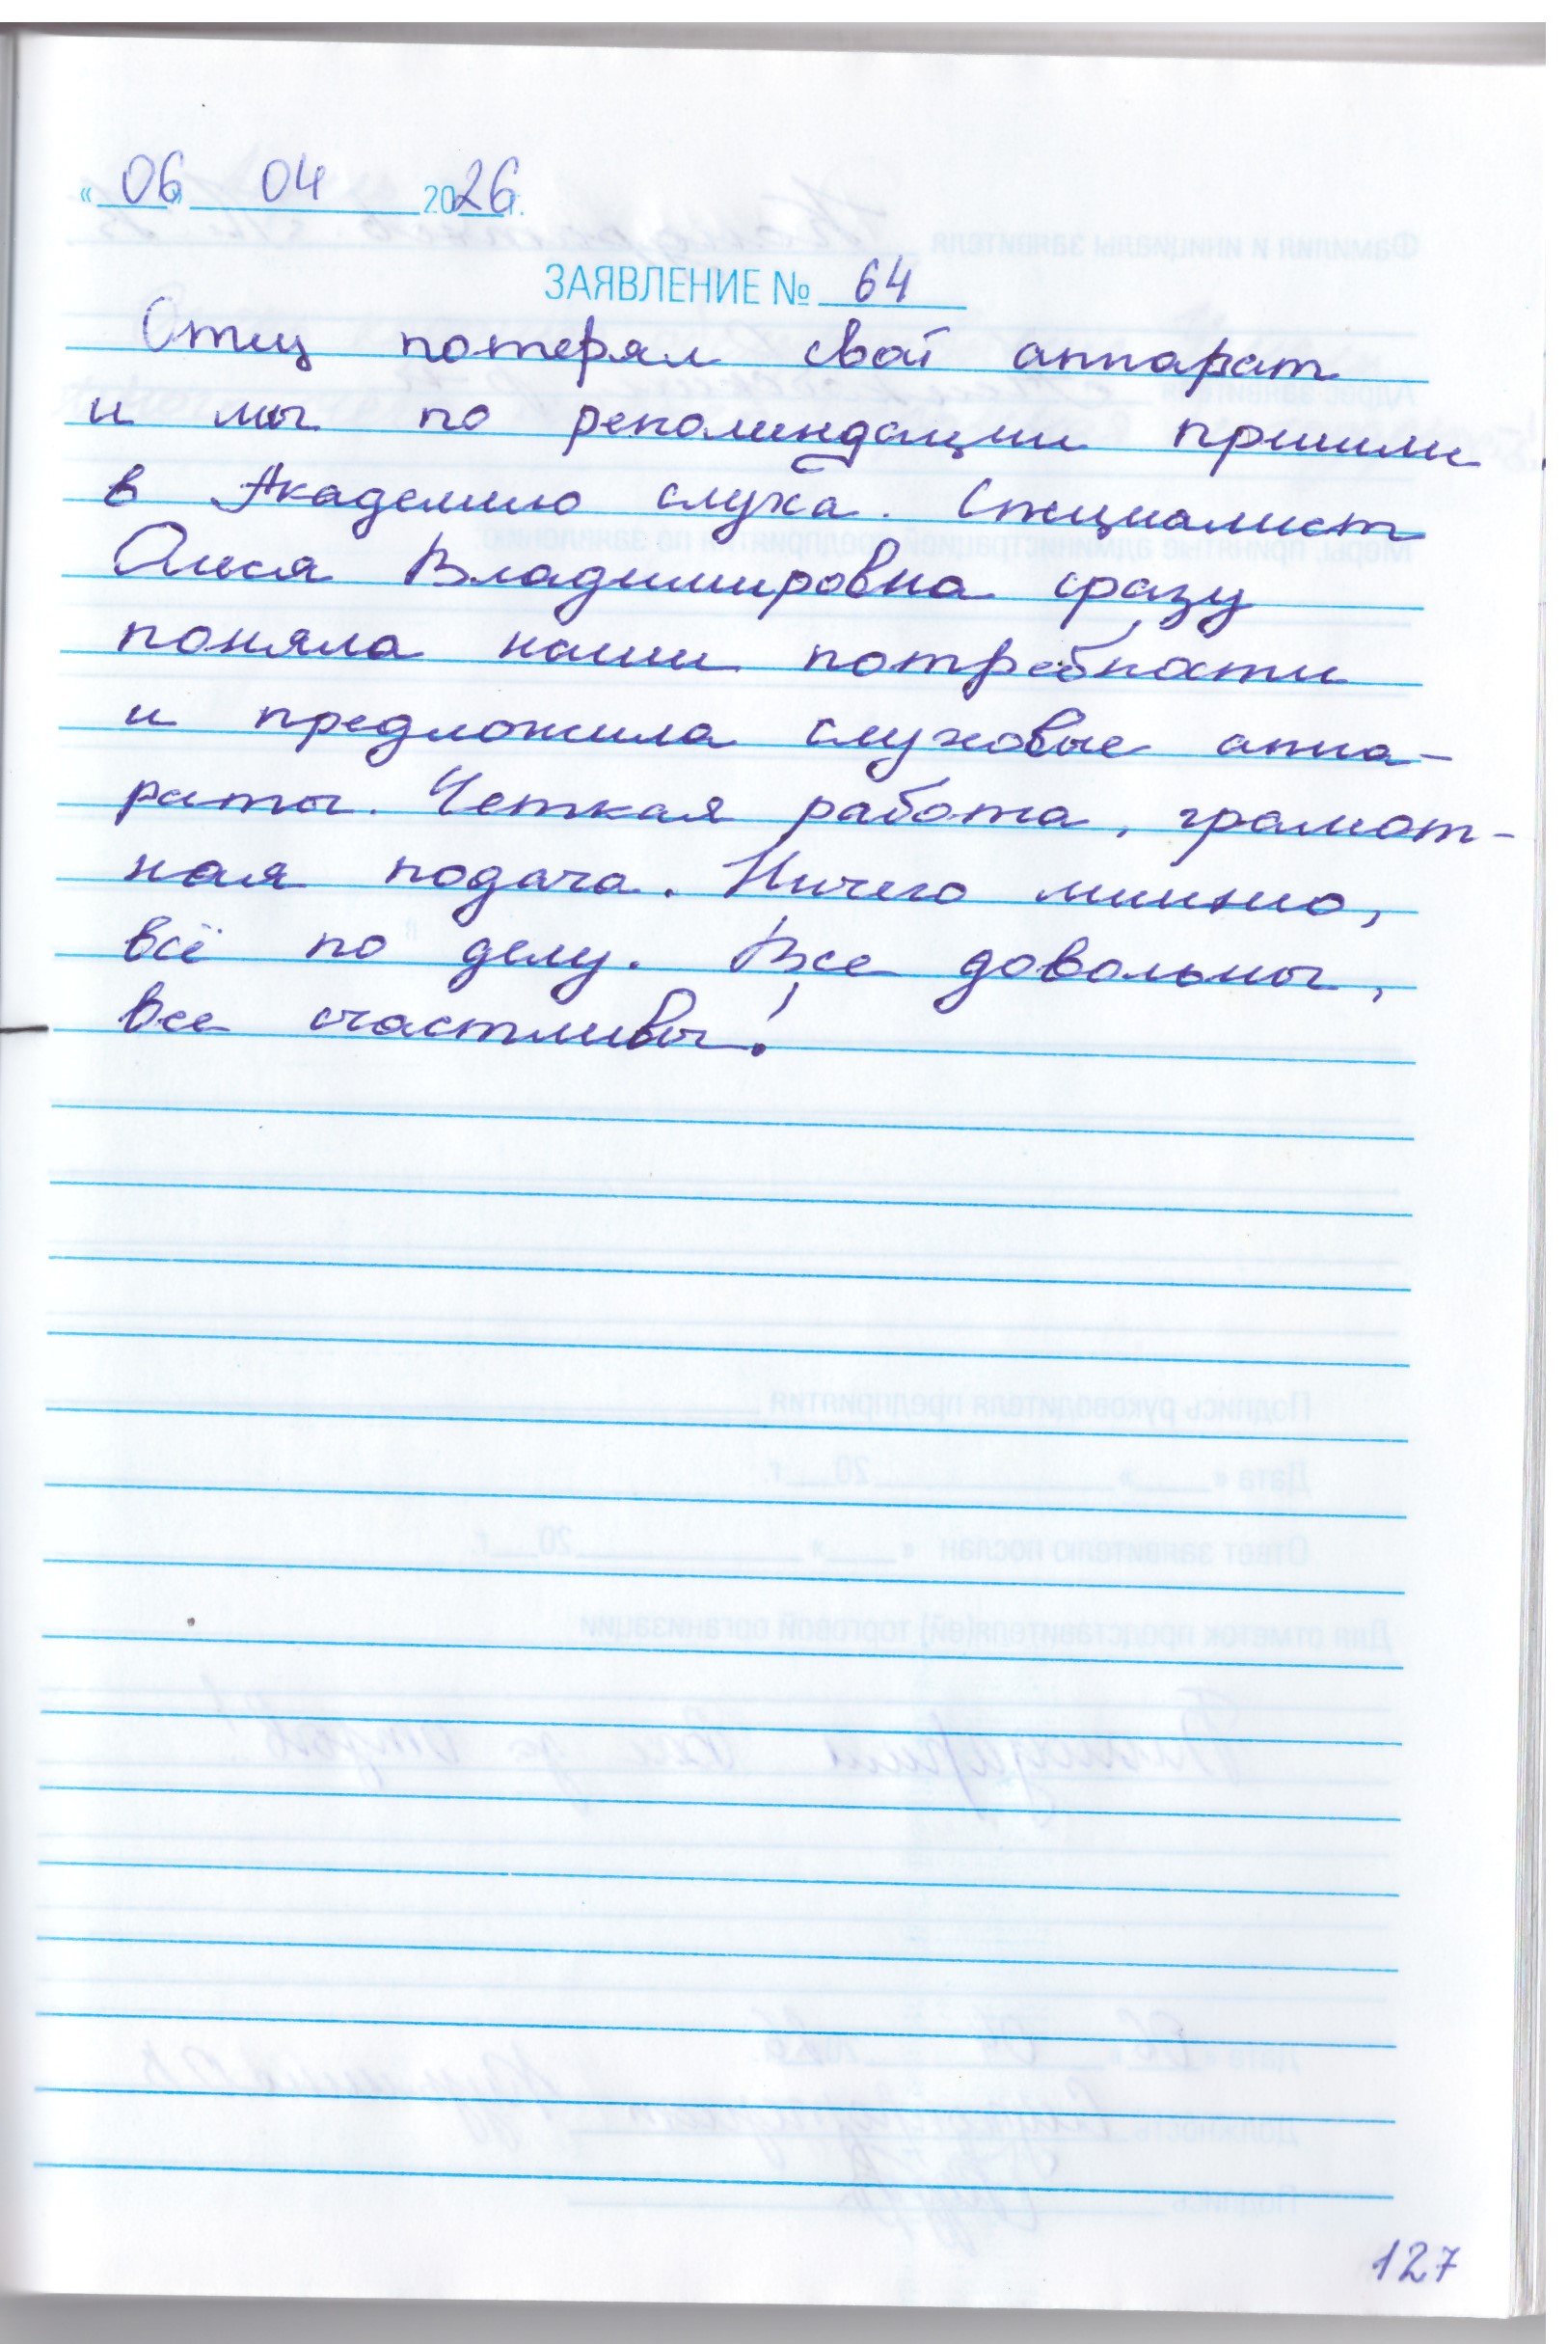 « 06 » 04 2026 г.
ЗАЯВЛЕНИЕ № 64
Отец потерял свой аппарат
и мы по рекомендации пришли
в Академию слуха. Специалист
Олеся Владимировна сразу
поняла наши потребности
и предложила слуховые аппа-
раты. Четкая работа, грамот-
ная подача. Ничего лишнего,
всё по делу. Все довольны,
все счастливы!
127